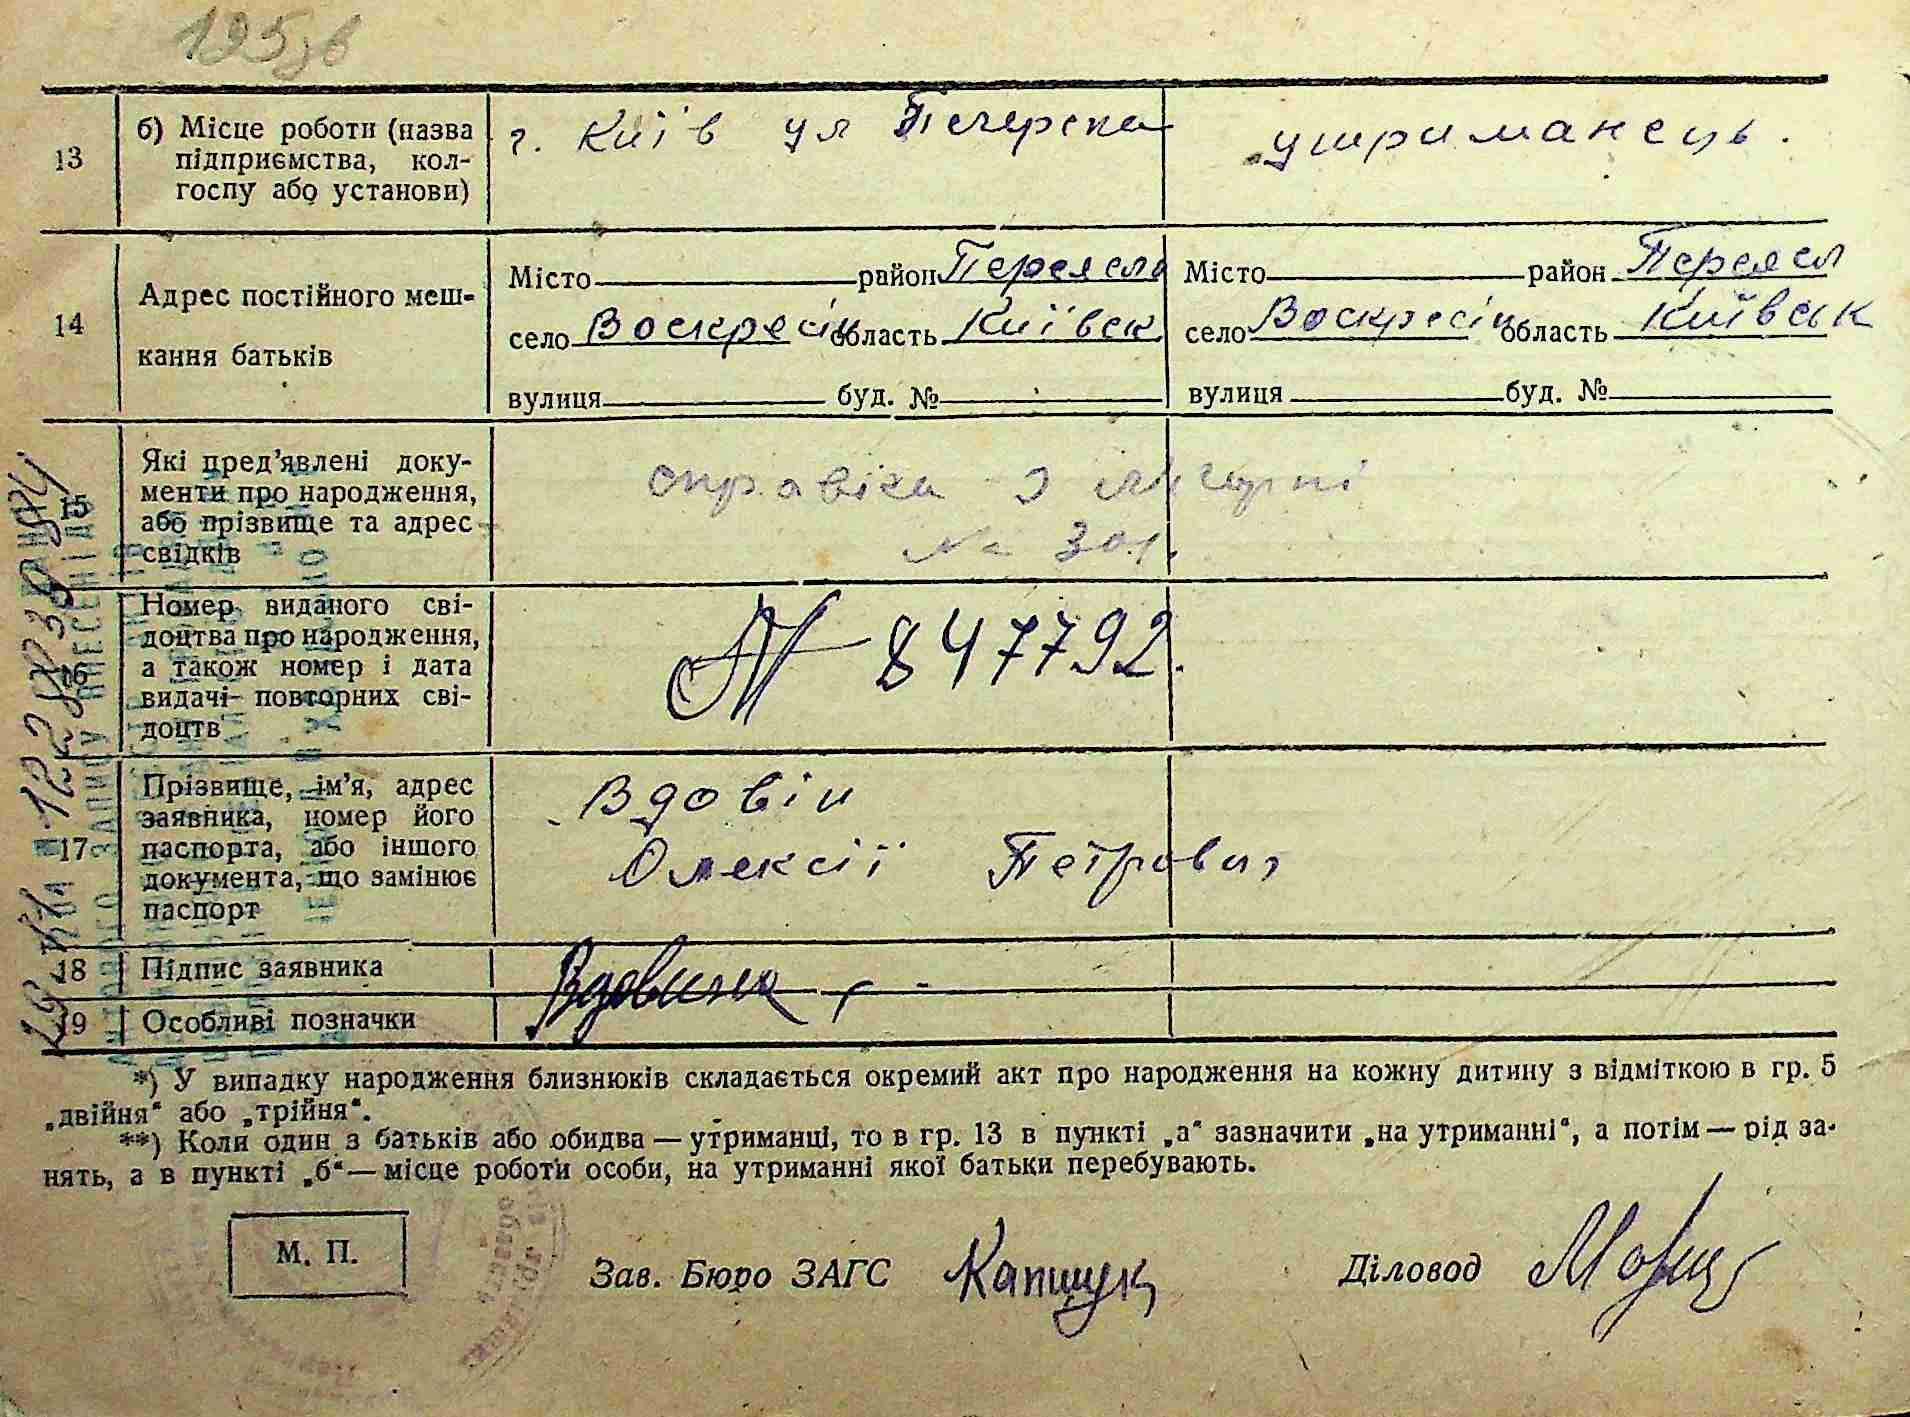 195зв
13
б) Місце роботи (назва
підприємства, кол-
госпу або установи)
г. Київ ул Печерска
утриманець.
14
Адрес постійного меш-
кання батьків
Місто район Переясл
село Воскресін область Київск
вулиця буд. №
Місто район Переясл
село Воскресін область Київськ
вулиця буд. №
15
Які пред'явлені доку-
менти про народження,
або прізвище та адрес
свідків
справка з
№ 301.
16
Номер виданого сві-
доцтва про народження,
а також номер і дата
видачі повторних сві-
доцтв
№ 847792.
17
Прізвище, ім'я, адрес
заявника, номер його
паспорта, або іншого
документа, що замінює
паспорт
Вдовін
Олексій Петрович
18
Підпис заявника
Вдовина
19
Особливі позначки
*) У випадку народження близнюків складається окремий акт про народження на кожну дитину з відміткою в гр. 5
„двійня“ або „трійня“.
**) Коли один з батьків або обидва — утриманці, то в гр. 13 в пункті „а“ зазначити „на утриманні“, а потім — рід за-
нять, а в пункті „б“ — місце роботи особи, на утриманні якої батьки перебувають.
М. П.
Зав. Бюро ЗАГС Капшук
Діловод